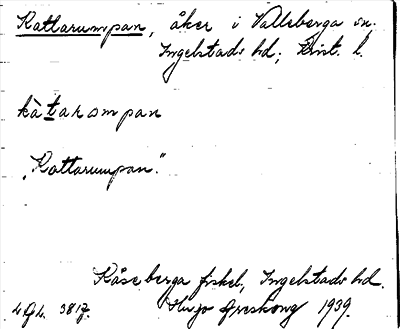 Kattarumpan, åker i Valleberga sn.
Ingelstads hd, Krist. l.
kàtarompan
"Kattarumpan."
Kåseberga fiskel., Ingelstads hd.
Hugo Areskoug 1939.